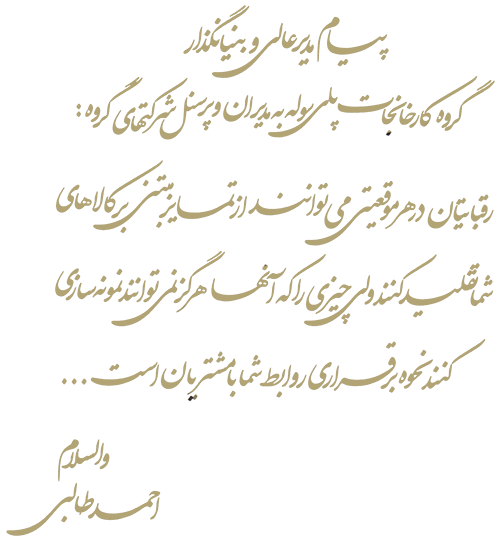 پیام مدیرعالی و بنیانگذار
گروه کارخانجات پلی سوله به مدیران و پرسنل شرکتهای گروه :
رقبایتان در هر موقعیتی می توانند از تمایز مبتنی بر کالاهای
شما تقلید کنند ولی چیزی را که آنها هرگز نمی توانند نمونه سازی
کنند نحوه برقراری روابط شما با مشتریان است ...
والسلام
احمد طالبی